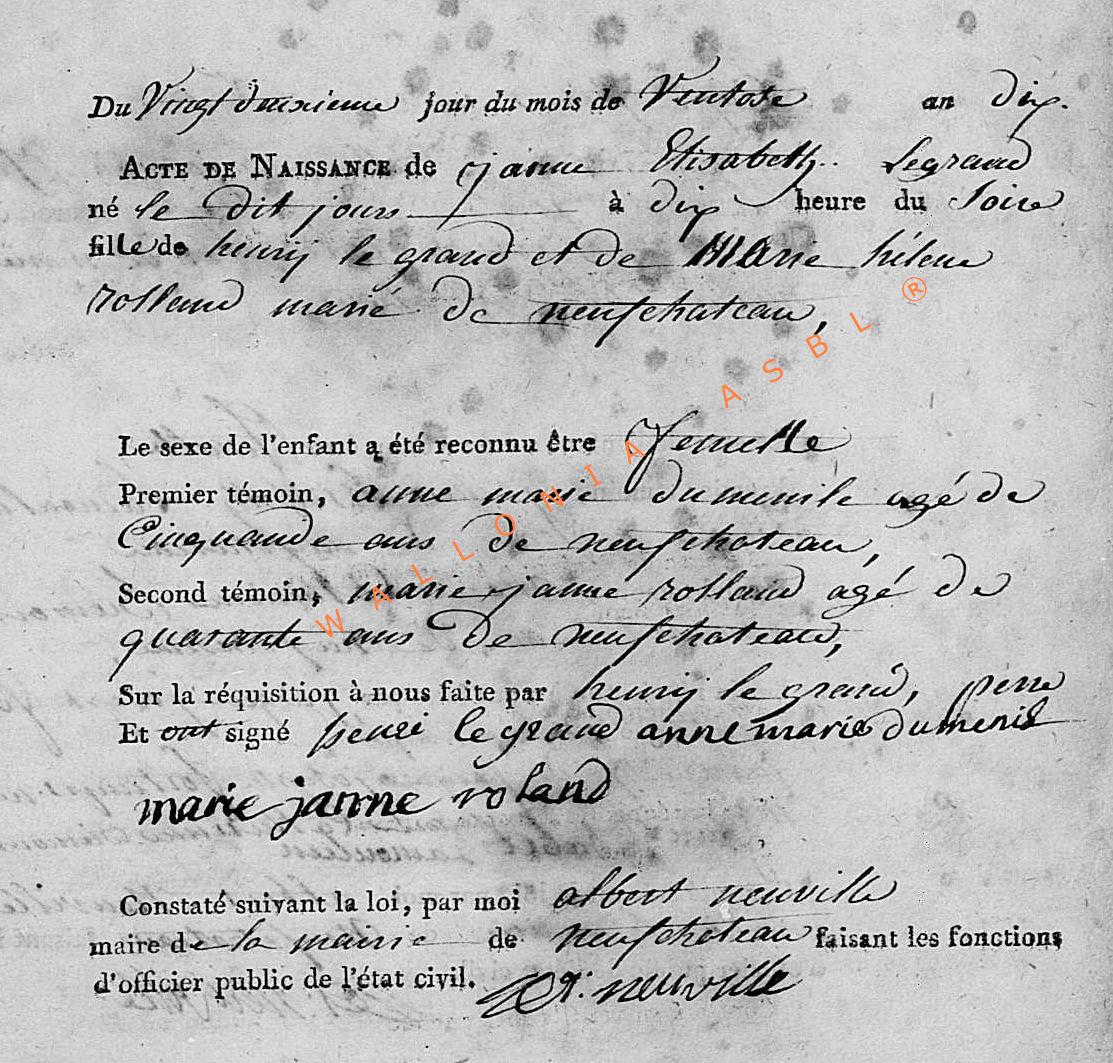 Du Vingt deuxieme jour du mois de Ventose an dix.
ACTE DE NAISSANCE de janne Elisabeth Legrand
né le dit jours à dix heure du Soire
fille de henrij le grand et de Marie hélene
rolland marié de neufchateau,
Le sexe de l'enfant a été reconnu être femelle
Premier témoin, anne marie dumenile agé de
Cinquande ans de neufchateau,
Second témoin, marie janne rolland agé de
quarante ans de neufchateau,
Sur la réquisition à nous faite par henrij le grand, perre
Et ont signé henri le grand anne marie dumenil
marie janne roland
Constaté suivant la loi, par moi albert neuville
maire de la mairie de neufchateau faisant les fonctions
d'officier public de l'état civil. neuville
WALLONIA ASBL ®